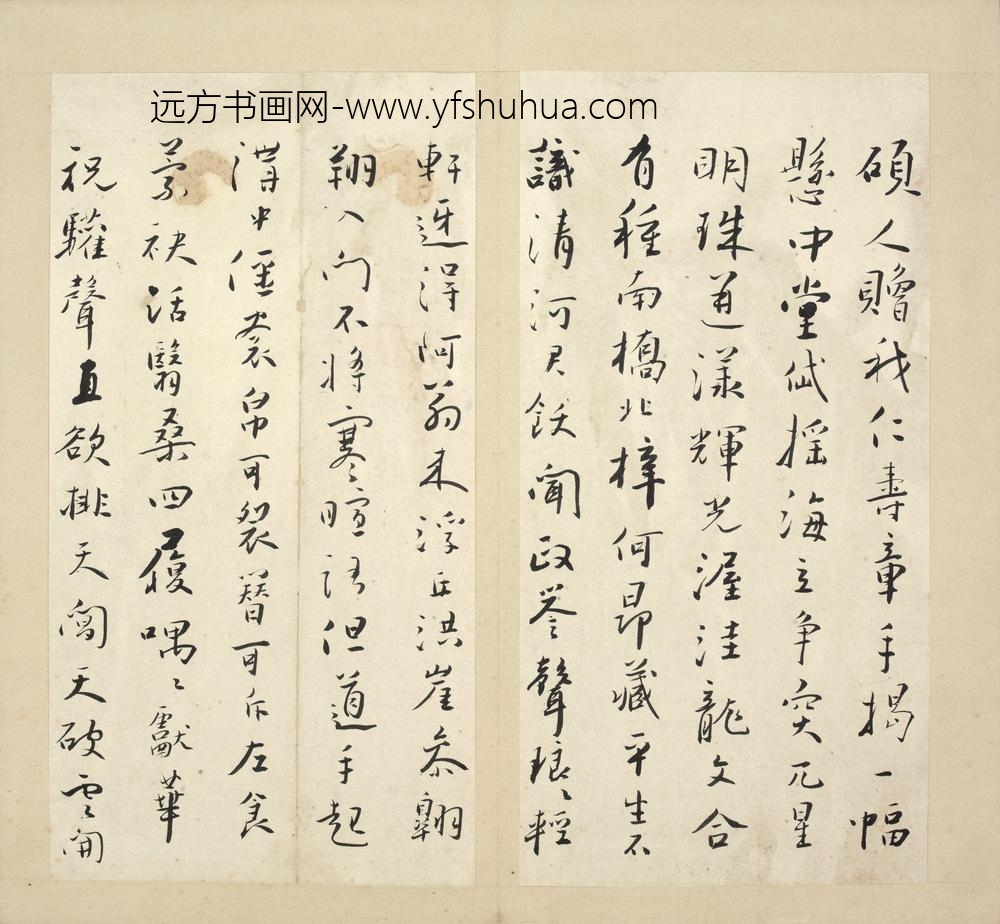 远方书画网-www.yfshuhua.com
碩人贈我仁壽章手揭一幅
懸中堂低搖海立爭突兀星
明珠道漾輝光渥洼龍文合
有種南橋北梓何昂藏平生不
識清河君飫聞政譽聲琅〻輕
軒迓得阿翁來浮丘洪崖參翱
翔入門不將寒暄語但道手起
溝中僵衾帛可裂簪可斥左食
蒙袂活翳桑四履喁〻獻華
祝驩聲直欲排天閶天破雲開